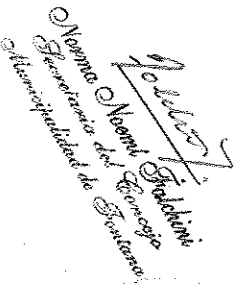 Norma Noemí Fialchini
Secretaria del Concejo
Municipalidad de Fontana